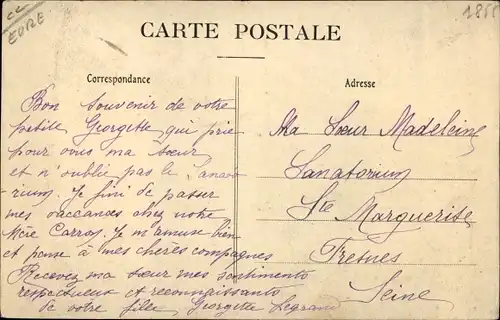 CC
EURE
CARTE POSTALE
Correspondance
Bon souvenir de votre
petite Georgette qui prie
pour vous ma sœur
et n'oublie pas le Sanato
rium. Je fini de passer
mes vaccances chez notre
Mère Carron. Je m'amuse bien
et pense à mes chères compagnes
Recevez ma sœur mes sentiments
respectueux et reconnaissants
de votre fille Georgette Legrand
Adresse
Ma Sœur Madeleine
Sanatorium
Ste Marguerite
Fresnes
Seine